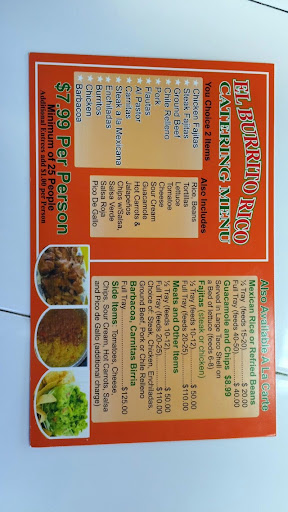 EL BURRITO RICO
CATERING MENU
You Choice 2 Items
★ Chicken Fajitas
★ Steak Fajitas
★ Ground Beef
★ Chile Relleno
★ Pork
★ Flautas
★ Al Pastor
★ Carnitas
★ Steak a la Mexicana
★ Enchiladas
★ Burritos
★ Chicken
★ Barbacoa
Also Includes
Rice, Beans
Tortillas
Lettuce
Tomatoe
Cheese
Sour Cream
Guacamole
Hot Carrots &
Jalapeños
Chips w/Salsa,
Salsa Verde
Salsa Roja
Pico De Gallo
$7.99 Per Person
Minimum of 25 People
Additional Entrees add $1.00 per Person
Also Available A La Carte
Mexican Rice or Refried Beans
½ Tray (feeds 15-20)... $ 20.00
Full Tray (feeds 40-50)... $ 40.00
Guacamole and Chips $8.99
Served in Large Taco Shell on
a Bed of lettuce (feeds 6-8)
Fajitas (steak or chicken)
½ Tray (feeds 10-12)...... $ 50.00
Full Tray (feeds 20-25)..... $110.00
Meats and Other Items
½ Tray (feeds 10-12)...... $ 50.00
Full Tray (feeds 20-25)..... $110.00
Choice of: Steak, Chicken, Enchiladas,
Ground Beef, Pork or Chile Relleno
Barbacoa, Carnitas Birria
Full Tray.................. $125.00
Side Items: Tomatoes, Cheese
Chips, Sour Cream, Hot Carrots, Salsa
and Pico De Gallo (additional charge)